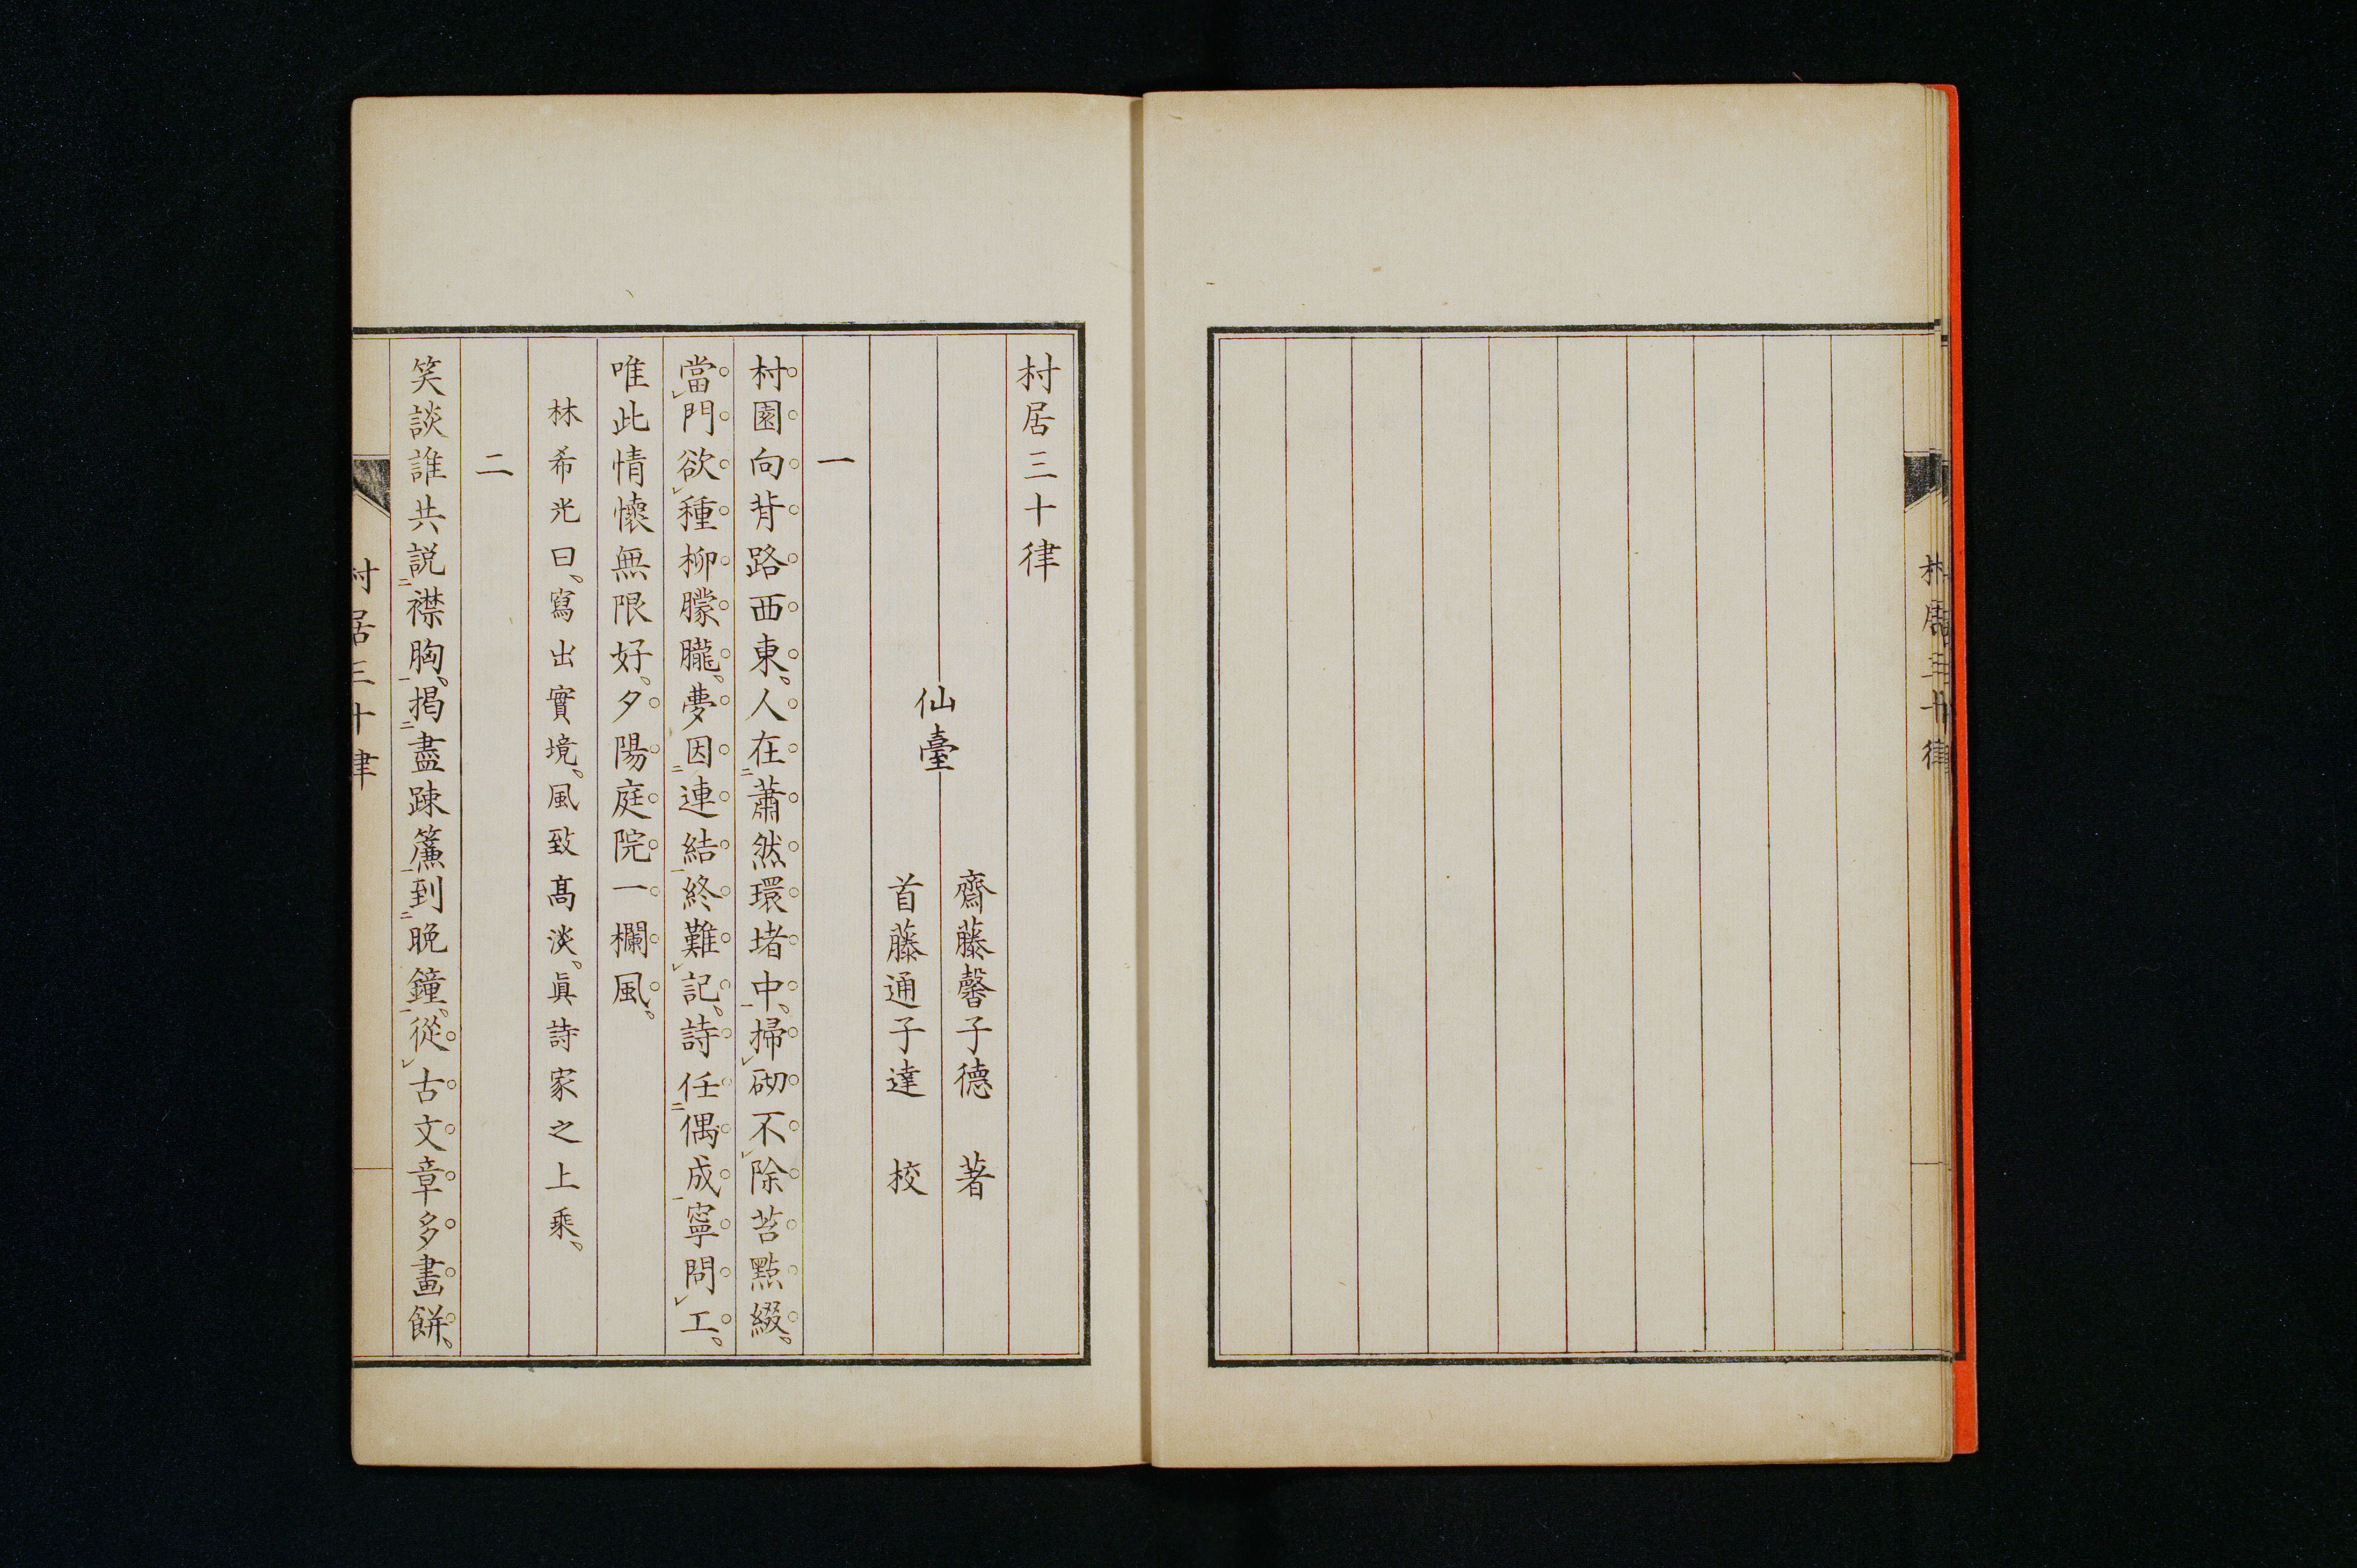 村居三十律
仙臺
齋藤馨子德 著
首藤通子達 校
一
村園向背路西東。人在蕭然環堵中。掃砌不除苔點綴。
當門欲種柳朦朧。夢因連結終難記。詩任偶成寧問工。
唯此情懷無限好。夕陽庭院一欄風。
林希光曰。寫出實境。風致髙淡。眞詩家之上乘。
二
笑談誰共説襟胸。掲盡踈簾到晩鐘。從古文章多畫餅。
村居三十律
村居三十律